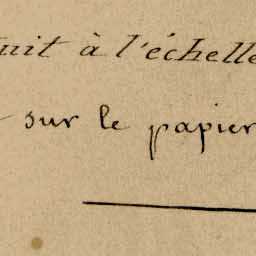 à l'échelle
sur le papier